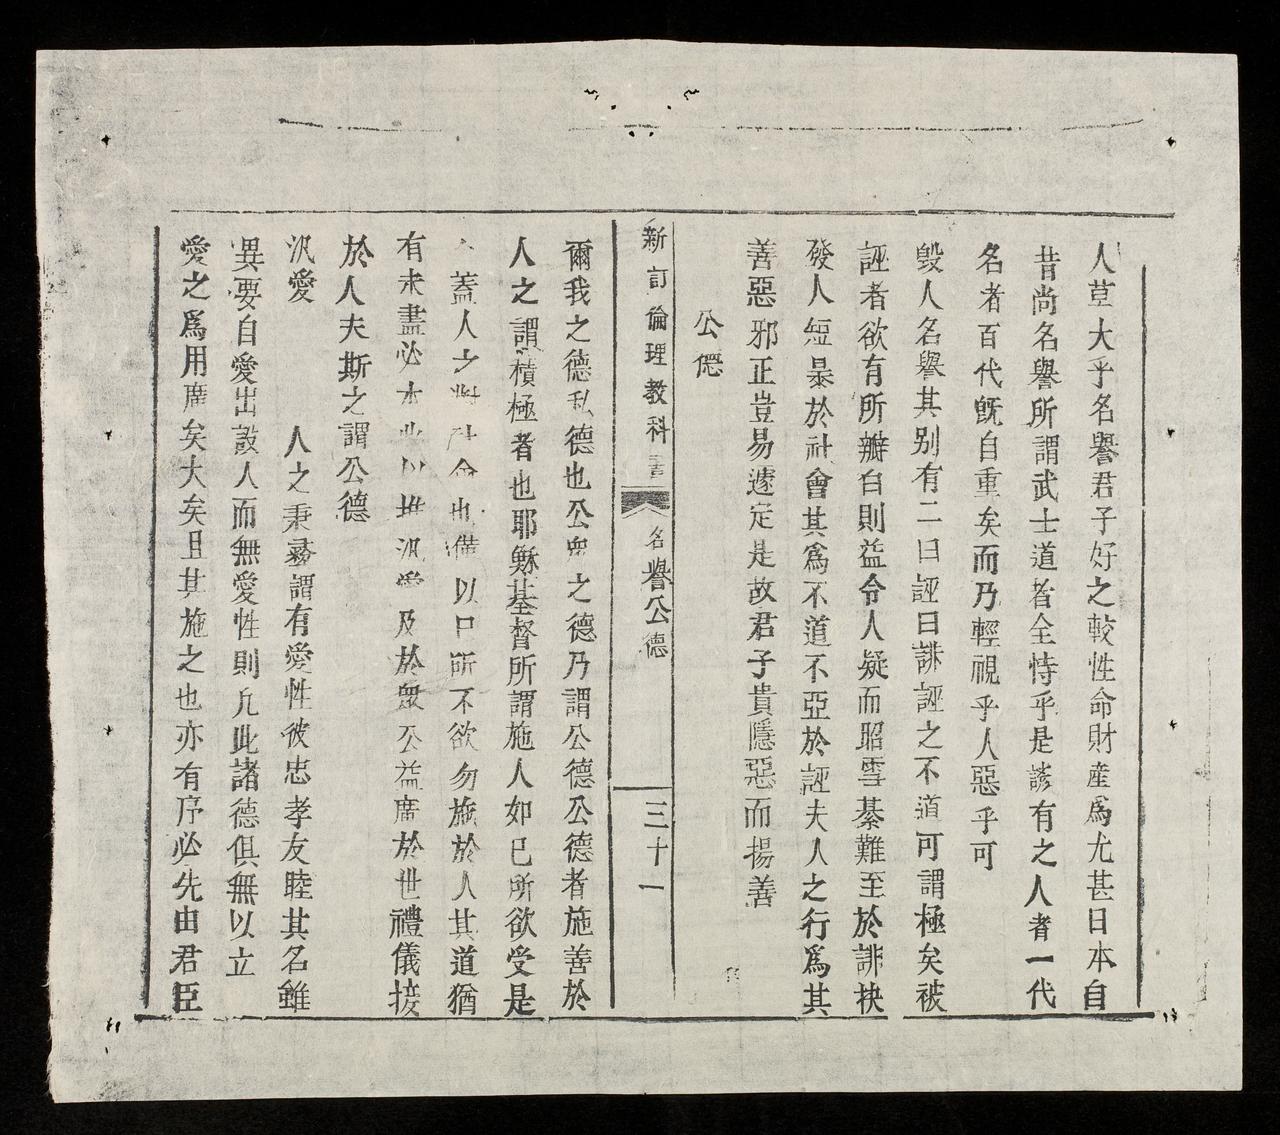 人莫大乎名譽君子好之較性命財產爲尤甚日本自
昔尚名譽所謂武士道者全恃乎是該有之人者一代
名者百代旣自重矣而乃輕視乎人惡乎可
毀人名譽其別有二曰誣曰誹誣之不道可謂極矣被
誣者欲有所辦白則益令人疑而昭雪綦難至於誹抉
發人短暴於社會其爲不道不亞於誣夫人之行爲其
善惡邪正豈易遽定是故君子貴隱惡而揚善
公德
新訂倫理教科書 名譽公德 三十一
爾我之德私德也公衆之德乃謂公德公德者施善於
人之謂積極者也耶穌基督所謂施人如己所欲受是
蓋人之對社會也備以口所不欲勿施於人其道猶
有未盡必本此以推汎愛及於衆公益廣於世禮儀接
於人夫斯之謂公德
汎愛 人之秉彝謂有愛性彼忠孝友睦其名雖
異要自愛出設人而無愛性則凡此諸德俱無以立
愛之爲用廣矣大矣且其施之也亦有序必先由君臣